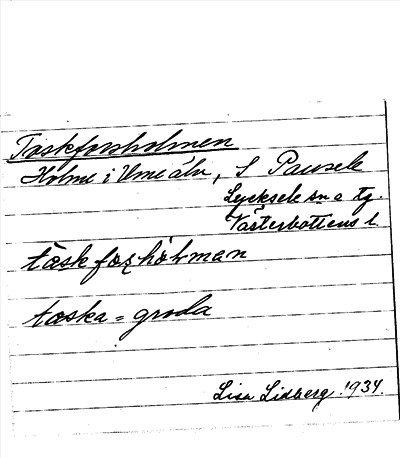 Taskforsholmen
Holme i Ume älv, S Pausele
Lycksele sn o tg.
Västerbottens l.
task forhólman
taska = groda
Lisa Lidberg 1934.